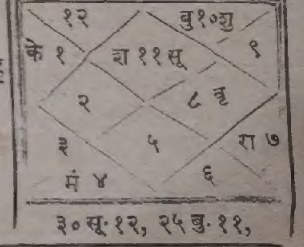 १२ बु१०शु
के १ श ११ सू ९
२ ८ वृ
३ ५ रा ७
मं ४ ६
३० सू. १२, २५ बु. ११,